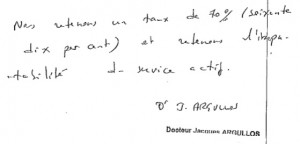 Nous retenons un taux de 70% (soixante
dix par cent) et retenons l'impu-
tabilité du service actif.
Dr J. ARGULLOS
Docteur Jacques ARGULLOS